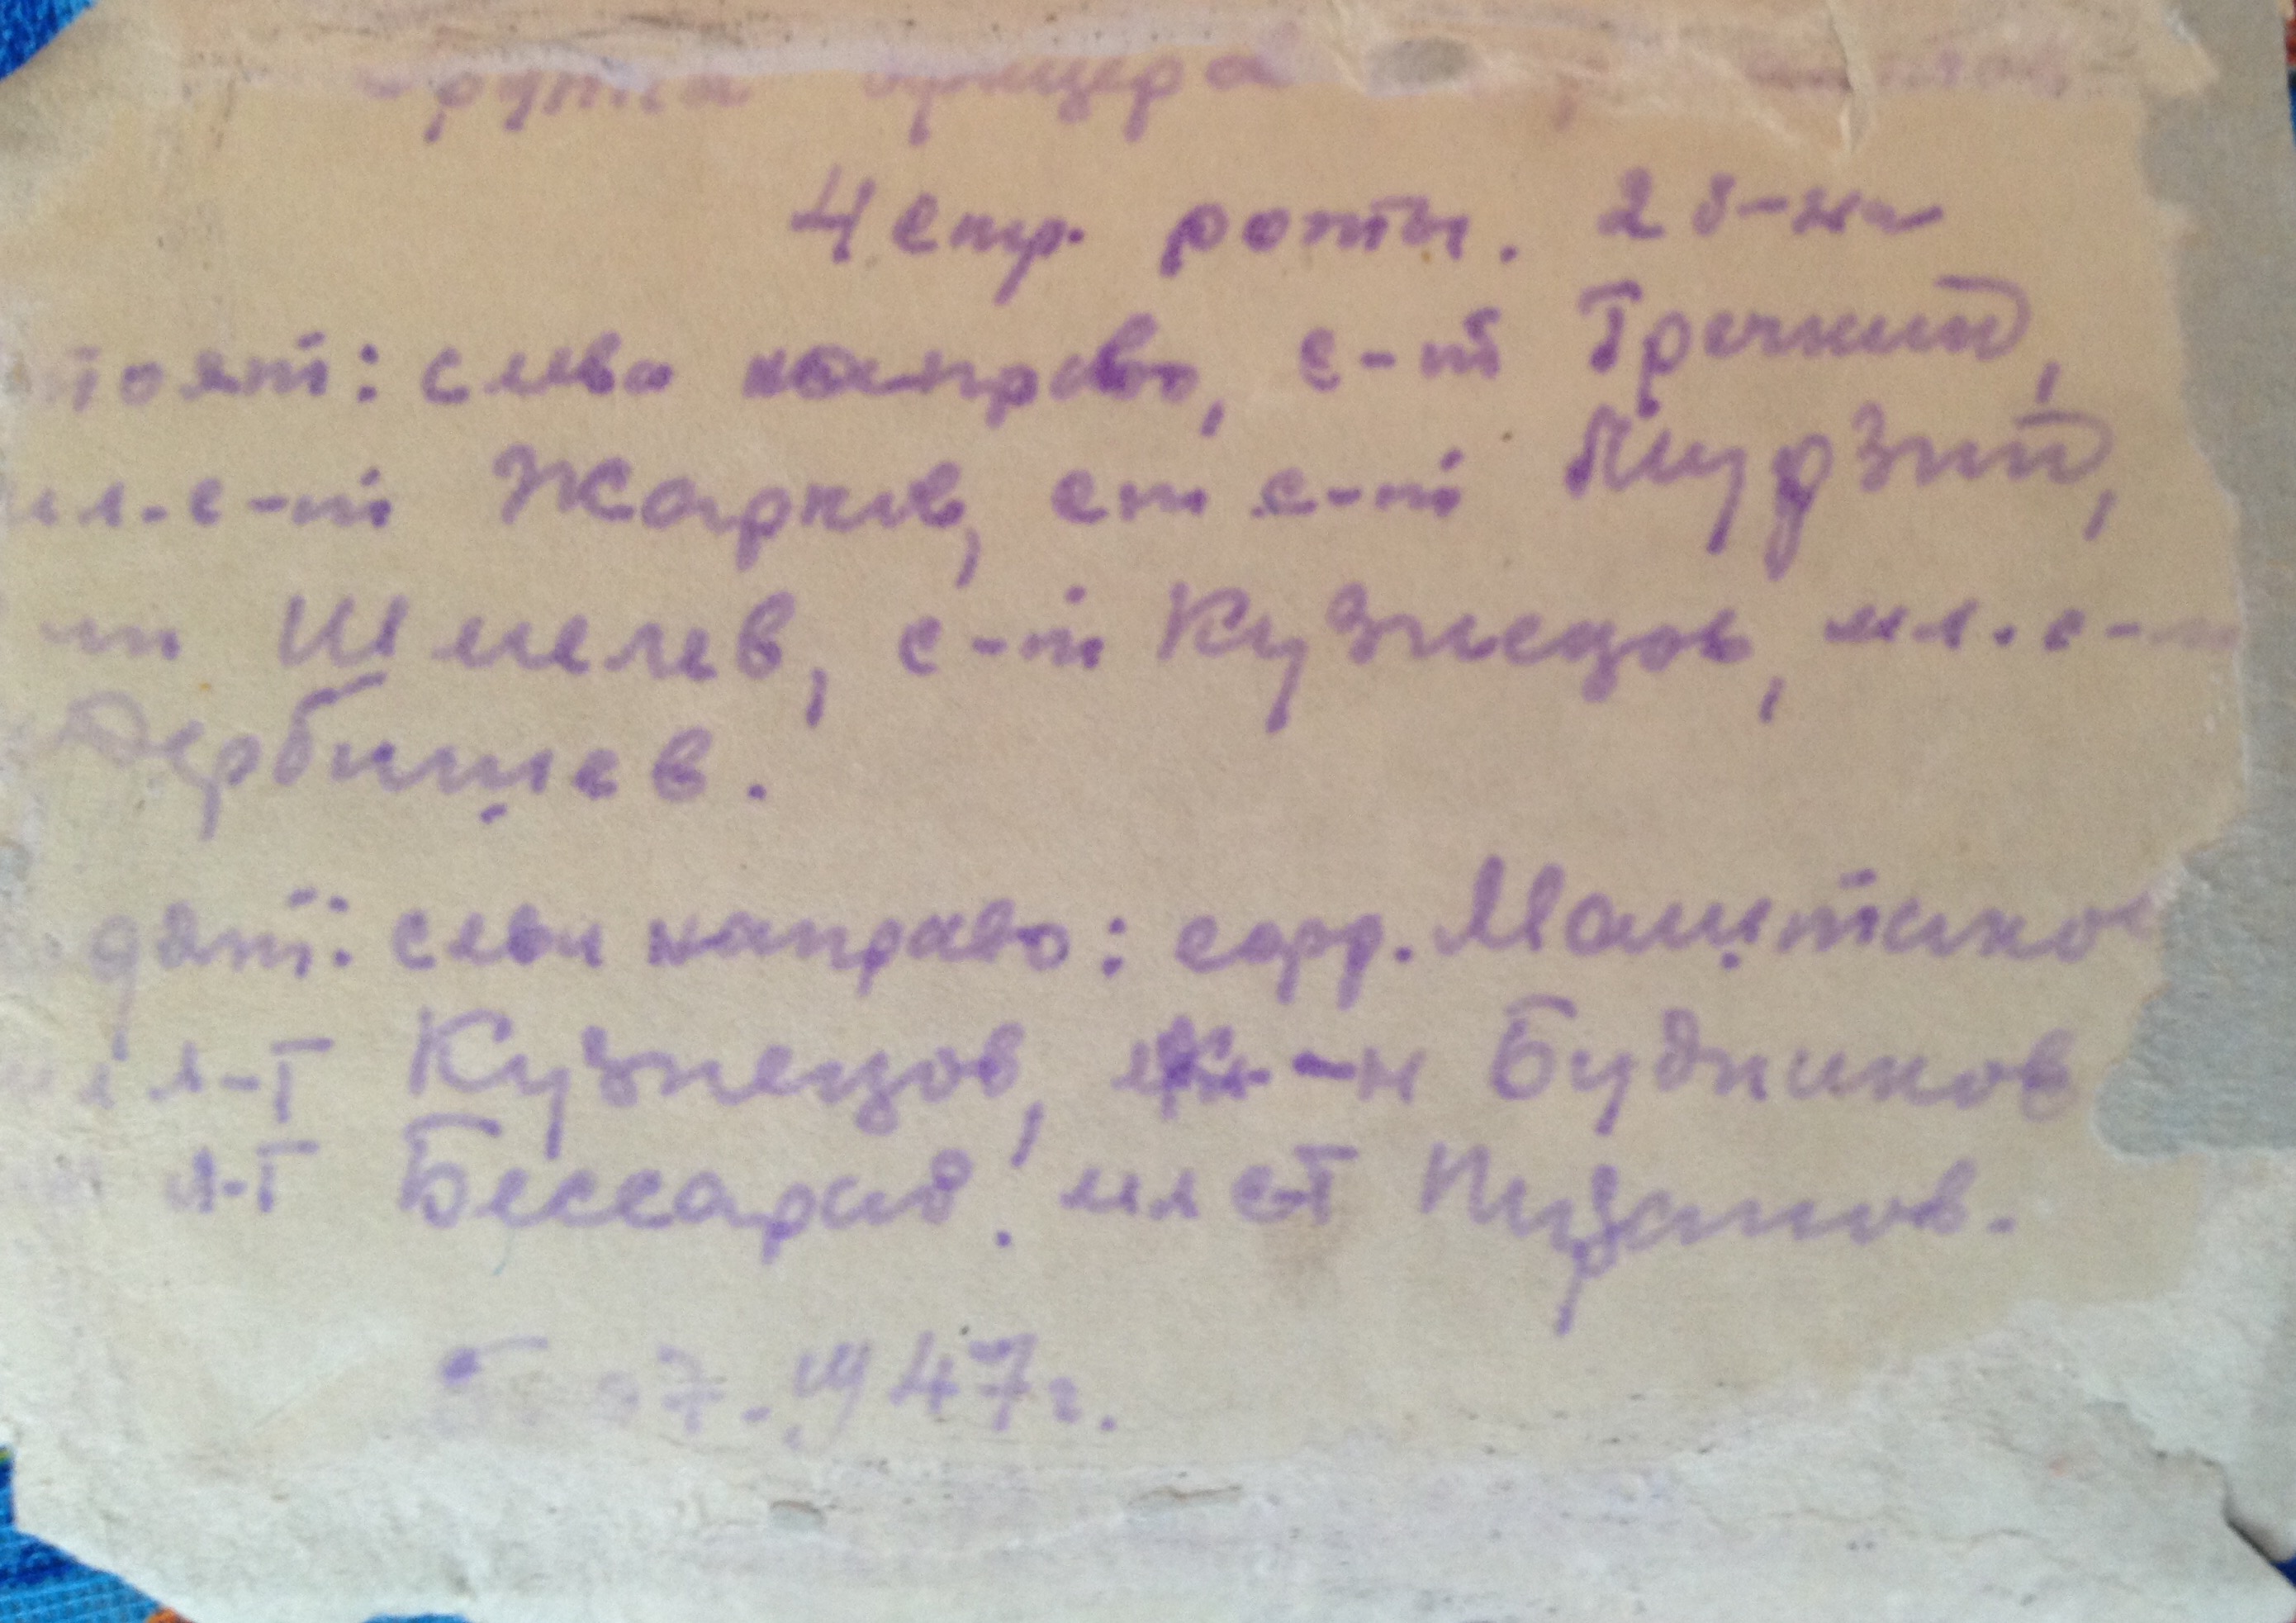 группа офицера
4 стр. роты. 2 б-на
тоят: слева направо, с-т Гречкин,
мл. с-т Жарков, ст с-т Мурзин,
Шмелев, с-т Кузнецов, мл. с-т
Дербишев.
дят: слева направо: ефр.
мл л-т Кузнецов, к-н Будников
л-т Бессараб. мл с-т Пузанов.
7. 1947г.